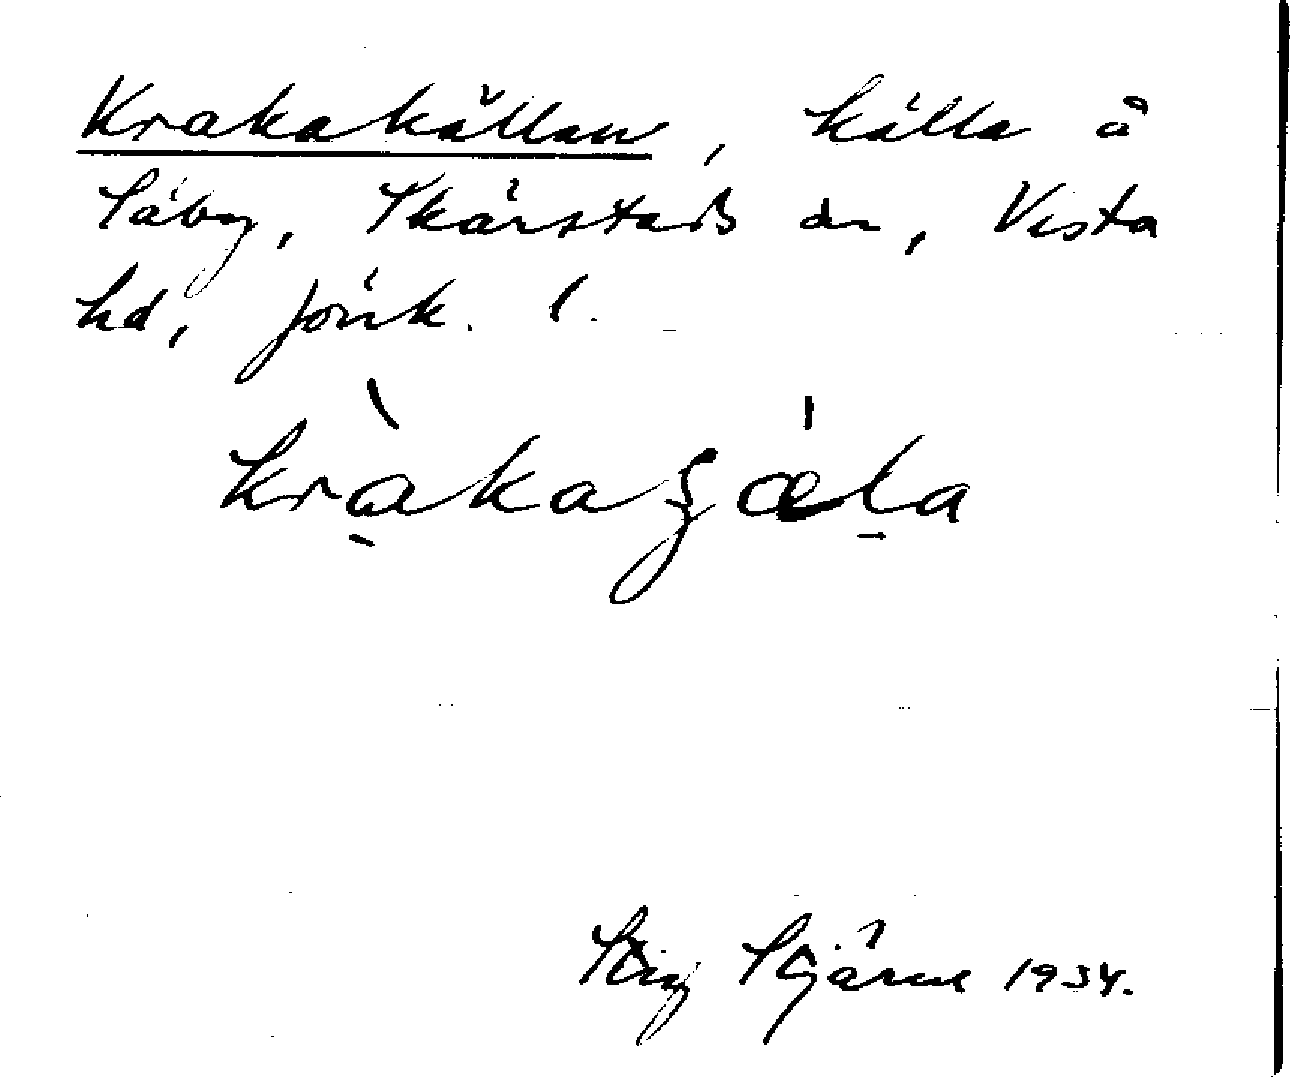 Krakakällan, källa å
Säby, Skärstads sn, Vista
hd, Jönk. l.
kràkaʂæ̀la
Stig Stjärne 1934.